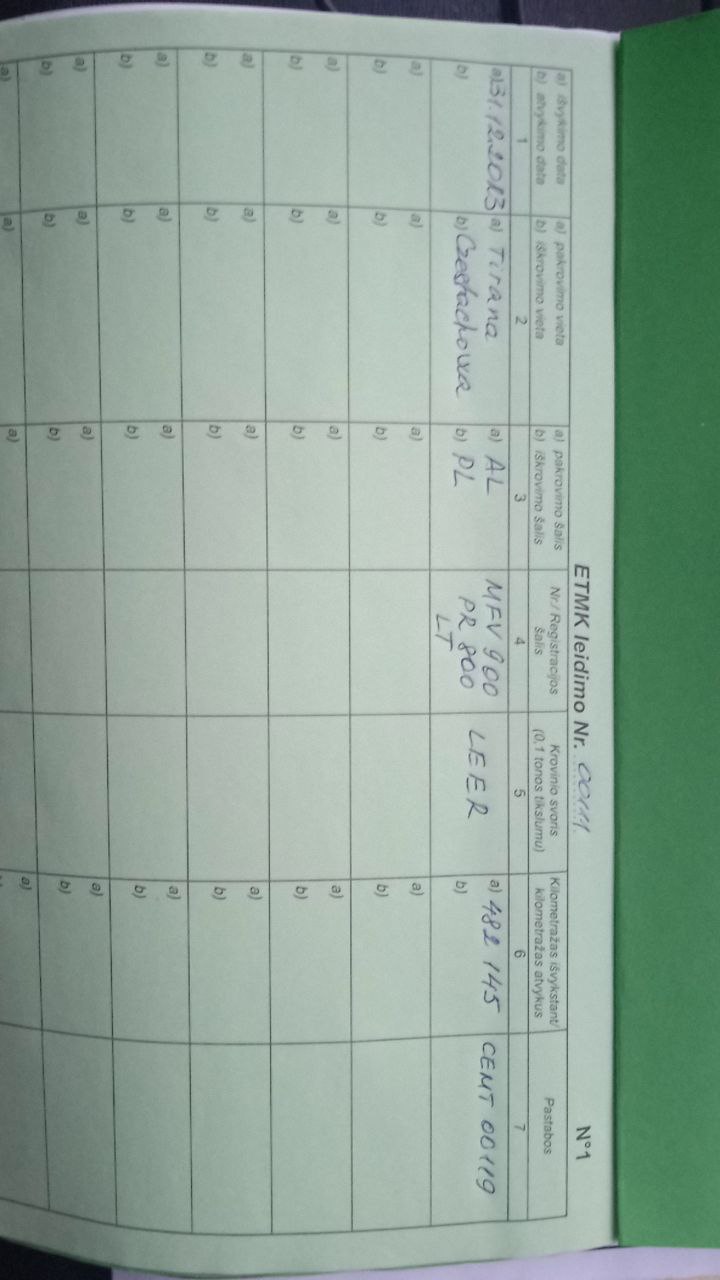 ETMK leidimo Nr. N°1
a) išvykimo data a) pakrovimo vieta a) pakrovimo šalis Nr./ Registracijos Krovinio svoris Kilometražas išvykstant/ Pastabos
b) atvykimo data b) iškrovimo vieta b) iškrovimo šalis šalis (0,1 tonos tikslumu) kilometražas atvykus
1 2 3 4 5 6 7
a) 31.12.2023 a) Tirana a) AL MFV 900 LEER a) 482 145 CEMT 00119
b) b) Czestachowa b) PL PR 800 b)
LT
a) a) a) a)
b) b) b) b)
a) a) a) a)
b) b) b) b)
a) a) a) a)
b) b) b) b)
a) a) a) a)
b) b) b) b)
a) a) a) a)
b) b) b) b)
a) a) a) a)